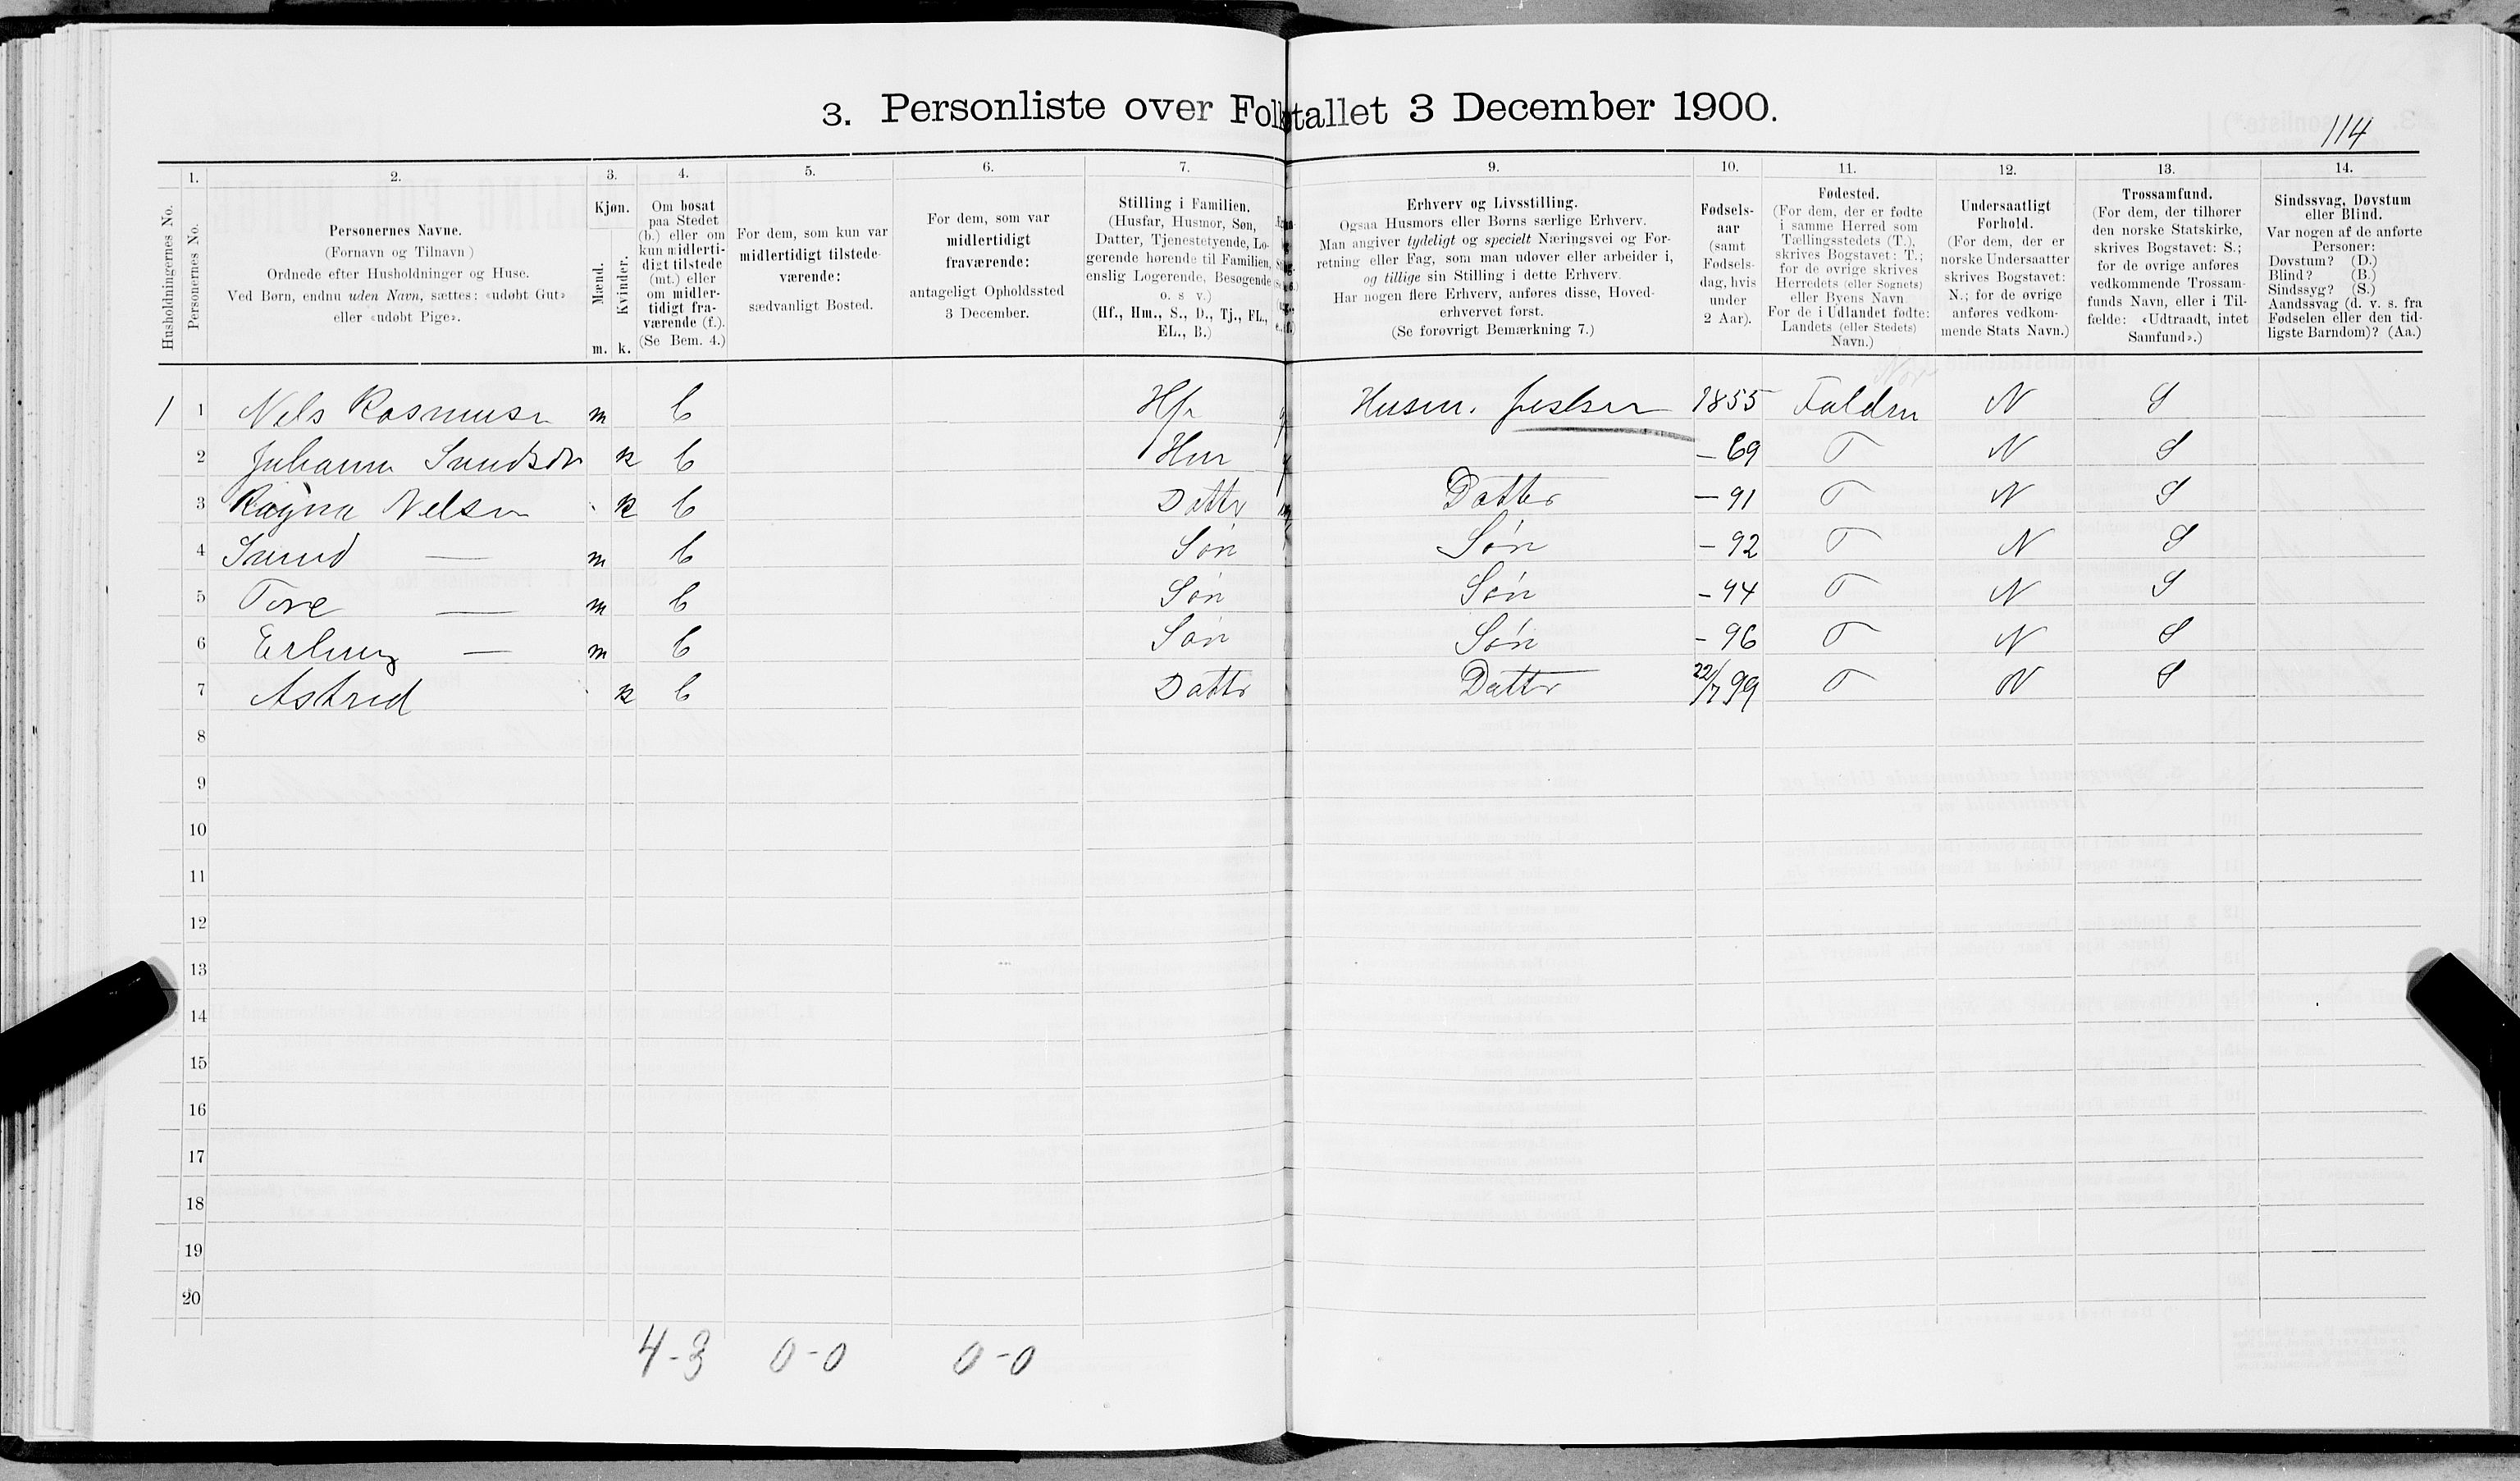 3. Personliste over Folketallet 3 December 1900.
114
1. 2. 3. 4. 5. 6. 7. 9. 10. 11. 12. 13. 14.
Husholdningernes No.
Personernes No.
Personernes Navne.
(Fornavn og Tilnavn)
Ordnede efter Husholdninger og Huse.
Ved Børn, endnu uden Navn, sættes: «udøbt Gut»
eller «udøbt Pige».
Kjøn.
Mænd.
Kvinder.
m. k.
Om bosat
paa Stedet
(b.) eller om
kun midlerti-
digt tilstede
(mt.) eller
om midler-
tidigt fra-
værende (f.).
(Se Bem. 4.)
For dem, som kun var
midlertidigt tilstede-
værende:
sædvanligt Bosted.
For dem, som var
midlertidigt
fraværende:
antageligt Opholdssted
3 December.
Stilling i Familien.
(Husfar, Husmor, Søn,
Datter, Tjenestetyende, Lo-
gerende hørende til Familien,
enslig Logerende, Besøgende
o. s v.)
(Hf., Hm., S., D., Tj., FL.,
EL., B.)
Erhverv og Livsstilling.
Ogsaa Husmors eller Børns særlige Erhverv.
Man angiver tydeligt og specielt Næringsvei og For-
retning eller Fag, som man udøver eller arbeider i,
og tillige sin Stilling i dette Erhverv.
Har nogen flere Erhverv, anføres disse, Hoved-
erhvervet først.
(Se forøvrigt Bemærkning 7.)
Fødsels-
aar
(samt
Fødsels-
dag, hvis
under
2 Aar).
Fødested.
(For dem, der er fødte
i samme Herred som
Tællingsstedets (T.),
skrives Bogstavet: T.;
for de øvrige skrives
Herredets (eller Sognets)
eller Byens Navn
For de i Udlandet fødte:
Landets (eller Stedets)
Navn.)
Undersaatligt
Forhold.
(For dem, der er
norske Undersaatter
skrives Bogstavet:
N.; for de øvrige
anføres vedkom-
mende Stats Navn.)
Trossamfund.
(For dem, der tilhører
den norske Statskirke,
skrives Bogstavet: S.;
for de øvrige anføres
vedkommende Trossam-
funds Navn, eller i Til-
fælde: «Udtraadt, intet
Samfund».)
Sindssvag, Døvstum
eller Blind.
Var nogen af de anførte
Personer:
Døvstum? (D.)
Blind? (B.)
Sindssyg? (S.)
Aandssvag (d. v. s. fra
Fødselen eller den tid-
ligste Barndom)? (Aa.)
1 1 Nels Rasmusn m b Hfr Husm. 1855 N S
2 k b Hmr - 69 T N S
3 Ragna Nelsen k b Datter Datter - 91 T N S
4 — m b Søn Søn - 92 T N S
5 Tore — m b Søn Søn - 94 T N S
6 Erling — m b Søn Søn - 96 T N S
7 Astrid k b Datter Datter 22/7 99 T N S
8
9
10
11
12
13
14
15
16
17
18
19
20
4-3 0-0 0-0